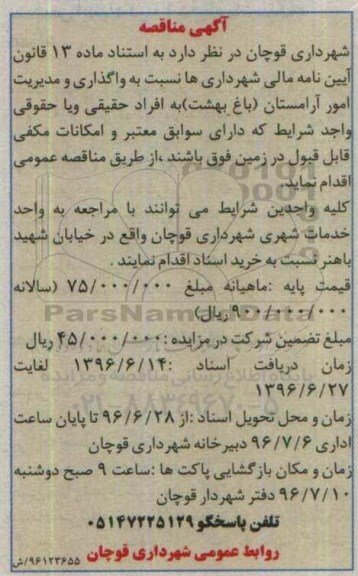 آگهی مناقصه
شهرداری قوچان در نظر دارد به استناد ماده ۱۳ قانون
آیین نامه مالی شهرداری ها نسبت به واگذاری و مدیریت
امور آرامستان (باغ بهشت)به افراد حقیقی ویا حقوقی
واجد شرایط که دارای سوابق معتبر و امکانات مکفی
قابل قبول در زمین فوق باشند ،از طریق مناقصه عمومی
اقدام نماید.
کلیه واجدین شرایط می توانند با مراجعه به واحد
خدمات شهری شهرداری قوچان واقع در خیابان شهید
باهنر نسبت به خرید اسناد اقدام نمایند .
قیمت پایه :ماهیانه مبلغ ۷۵/۰۰۰/۰۰۰ (سالانه
۹۰۰/۰۰۰/۰۰۰ریال)
ParsNamadData
مبلغ تضمین شرکت در مزایده :۴۵/۰۰۰/۰۰۰ ریال
زمان دریافت اسناد :۱۳۹۶/۶/۱۴ لغایت
۱۳۹۶/۶/۲۷
زمان و محل تحویل اسناد :از ۹۶/۶/۲۸ تا پایان ساعت
اداری ۹۶/۷/۶ دبیرخانه شهرداری قوچان
زمان و مکان بازگشایی پاکت ها :ساعت ۹ صبح دوشنبه
۹۶/۷/۱۰ دفتر شهردار قوچان
تلفن پاسخگو ۰۵۱۴۷۲۲۵۱۲۹
روابط عمومی شهرداری قوچان
۹۶۱۲۳۶۵۵/ش